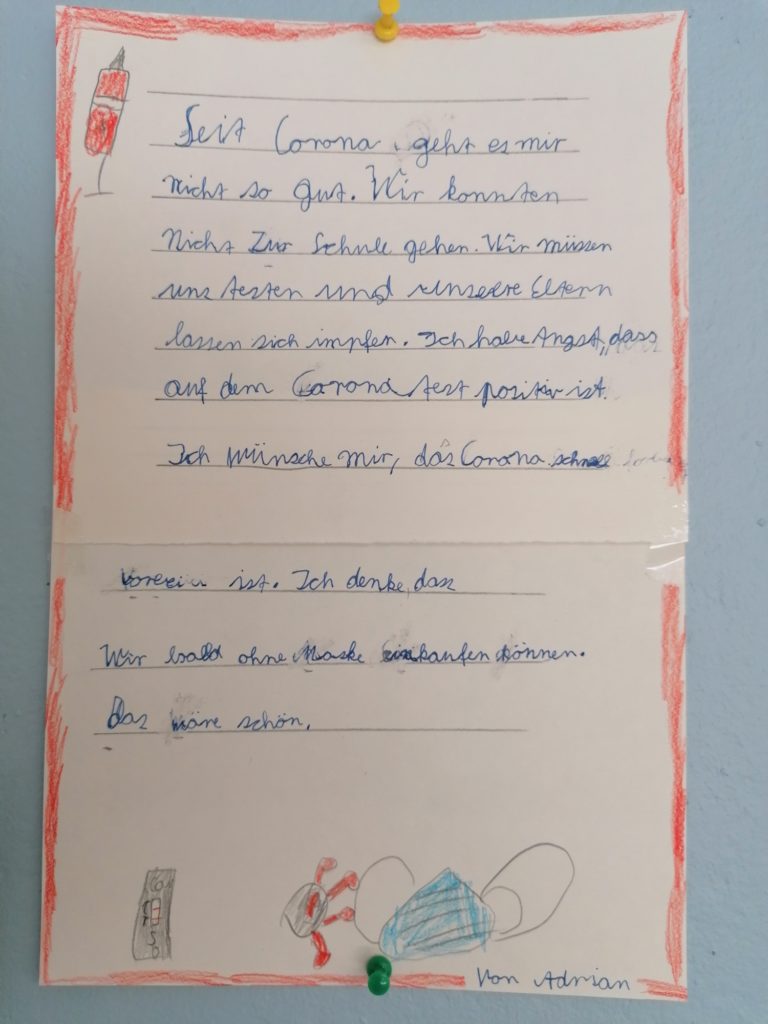 Seit Corona, geht es mir
nicht so gut. Wir konnten
Nicht Zur Schule gehen. Wir müssen
uns testen und unsere Eltern
lassen sich impfen. Ich habe Angst, dass
auf dem Corona test positiv ist.
Ich wünsche mir, das Corona schnell
vorbei ist. Ich denke, das
Wir bald ohne Maske einkaufen können.
Das wäre schön.
Von Adrian